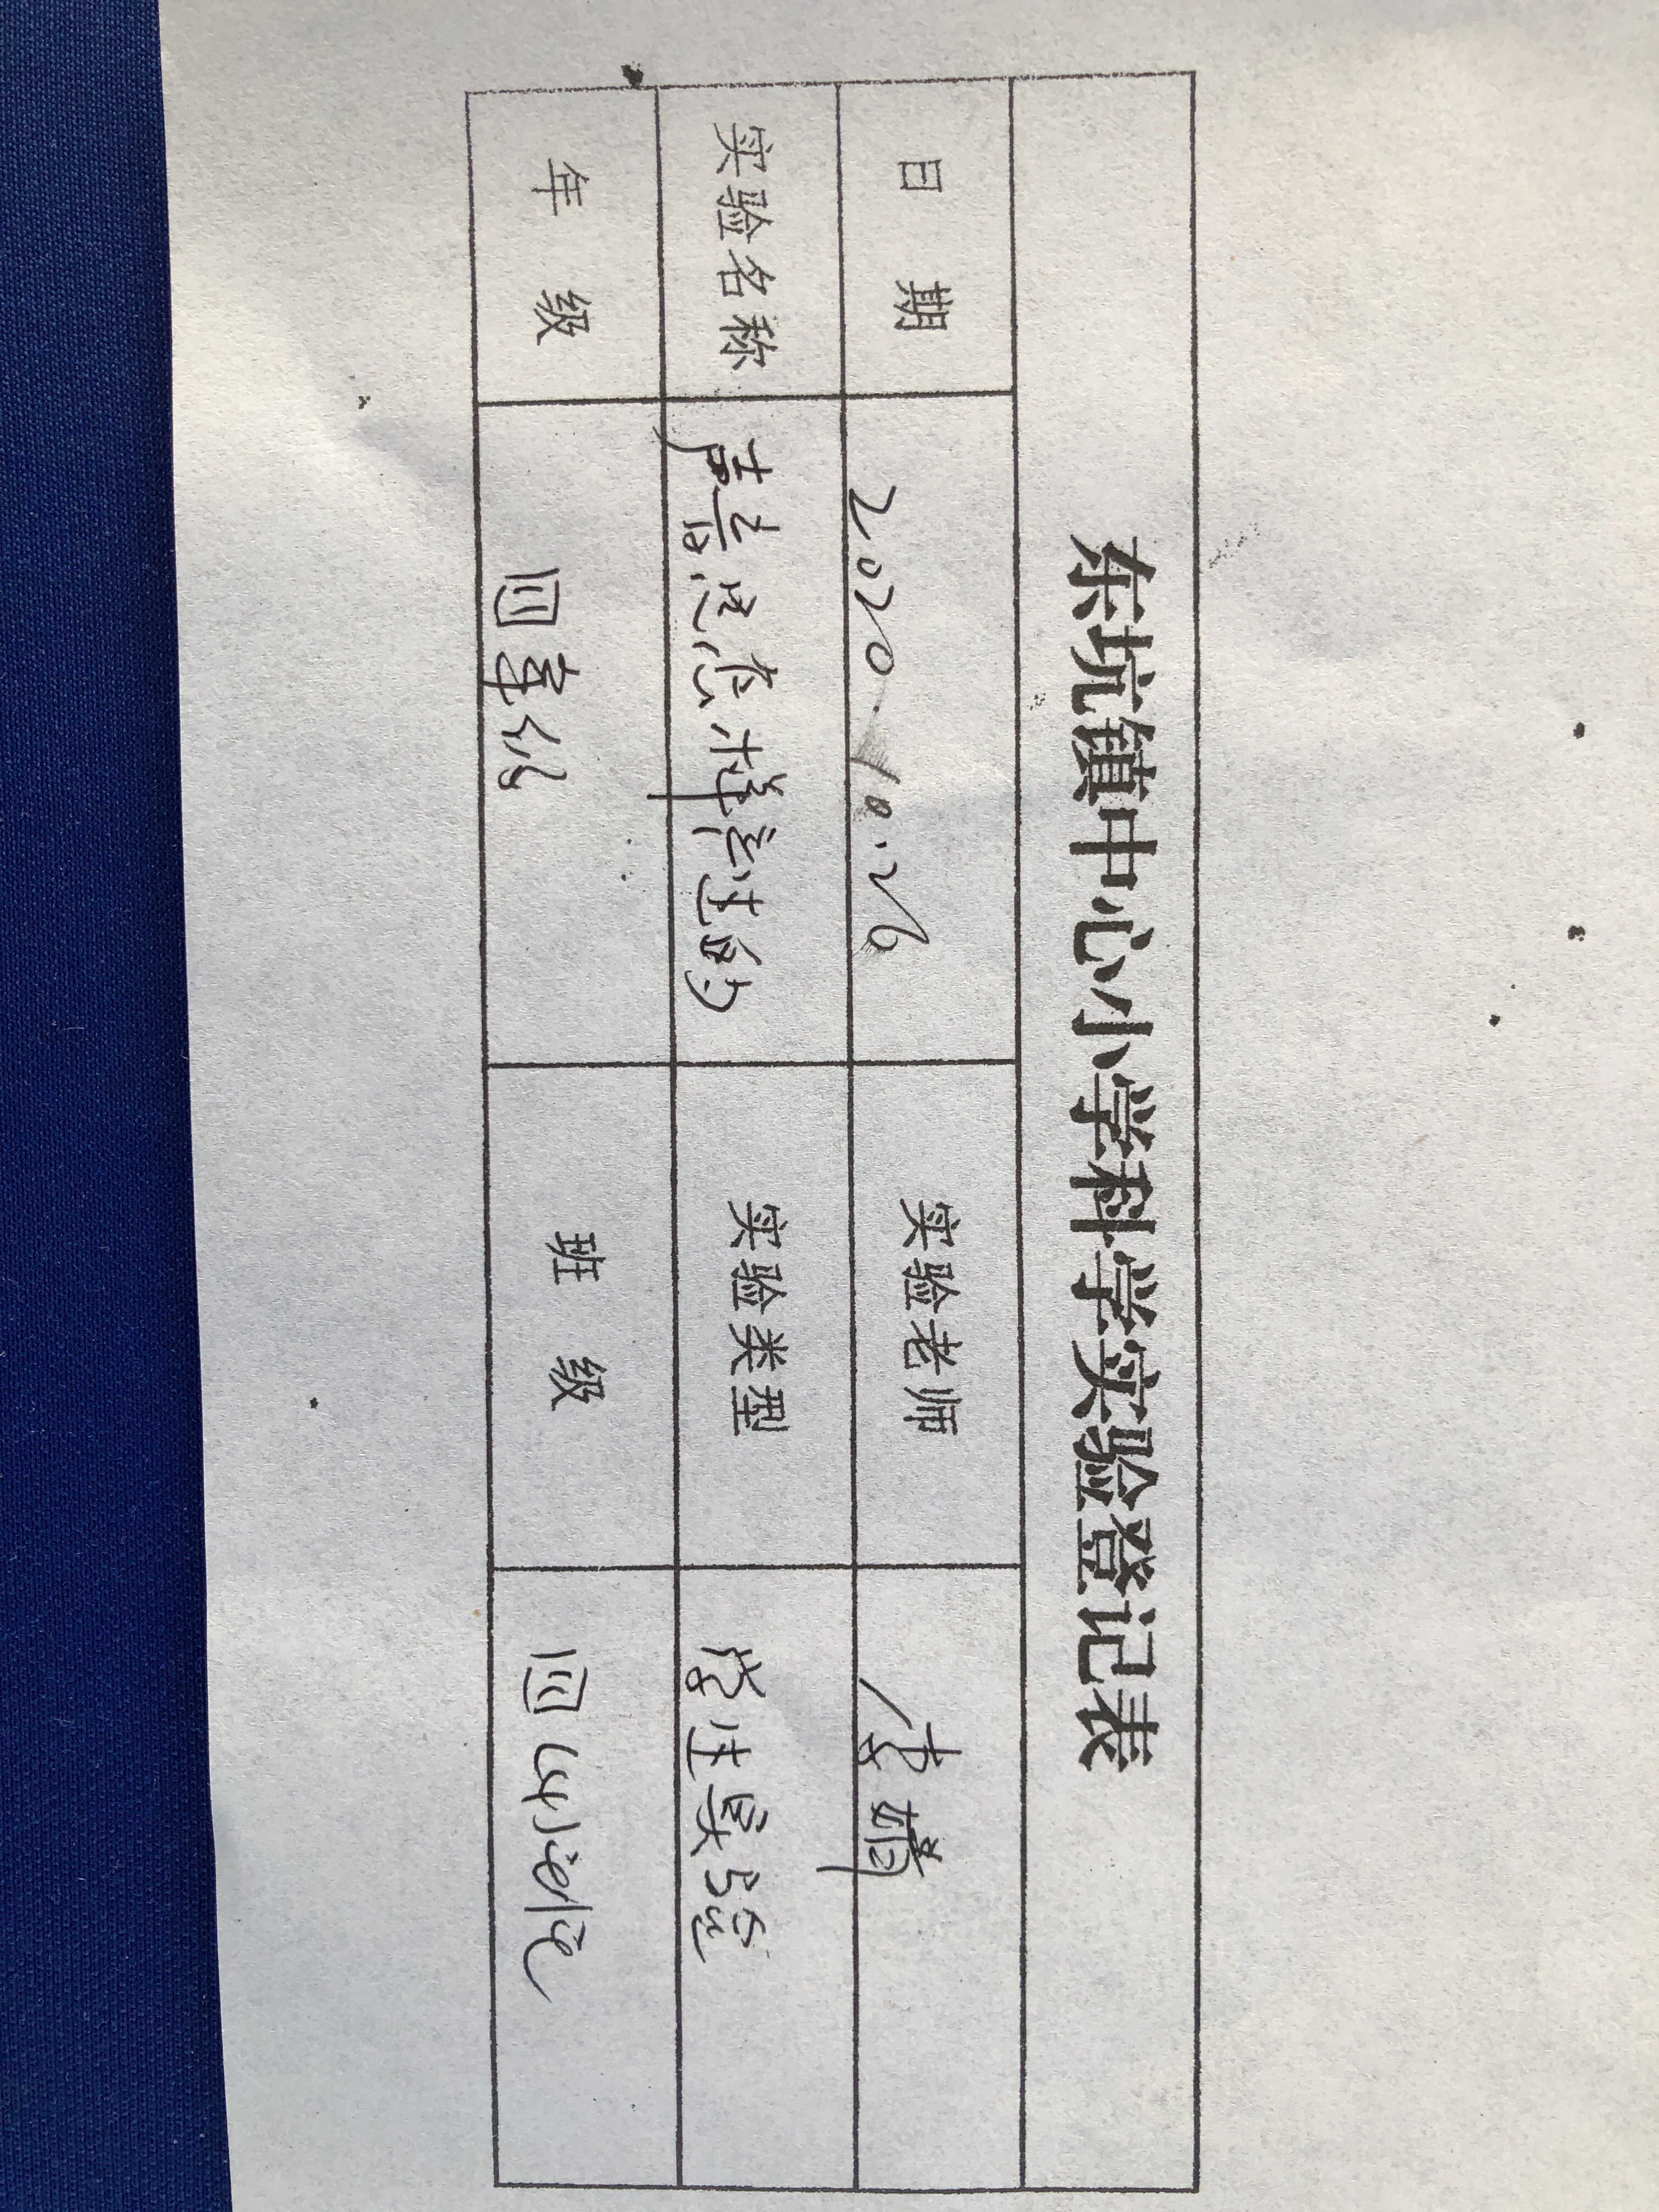 东坑镇中心小学科学实验登记表
日 期 2020.10.26 实验老师 李婧
实验名称 声音是怎样产生的 实验类型 学生实验
年 级 四年级 班 级 四